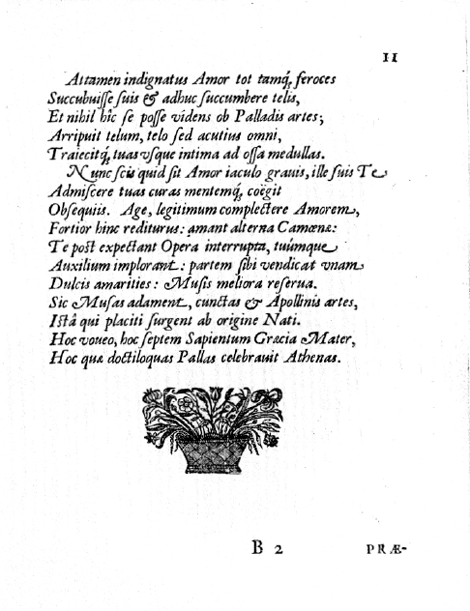 11
Attamen indignatus Amor tot tamq́; feroces
Succubuiſſe ſuis & adhuc ſuccumbere telis,
Et nihil hîc ſe poſſe videns ob Palladis artes;
Arripuit telum, telo ſed acutius omni,
Traiecitq́; tuas vſque intima ad oſſa medullas.
Nunc ſcis quid ſit Amor iaculo grauis, ille ſuis Te
Admiſcere tuas curas mentemq́; coëgit
Obſequiis. Age, legitimum complectere Amorem,
Fortior hinc rediturus: amant alterna Camœnæ:
Te poſt expectant Opera interrupta, tuúmque
Auxilium implorant: partem ſibi vendicat vnam
Dulcis amarities: Muſis meliora reſerua.
Sic Muſas adament, cunctas & Apollinis artes,
Iſtâ qui placiti ſurgent ab origine Nati.
Hoc voueo, hoc ſeptem Sapientum Græcia Mater,
Hoc quæ doctiloquas Pallas celebrauit Athenas.
B 2
PRÆ-